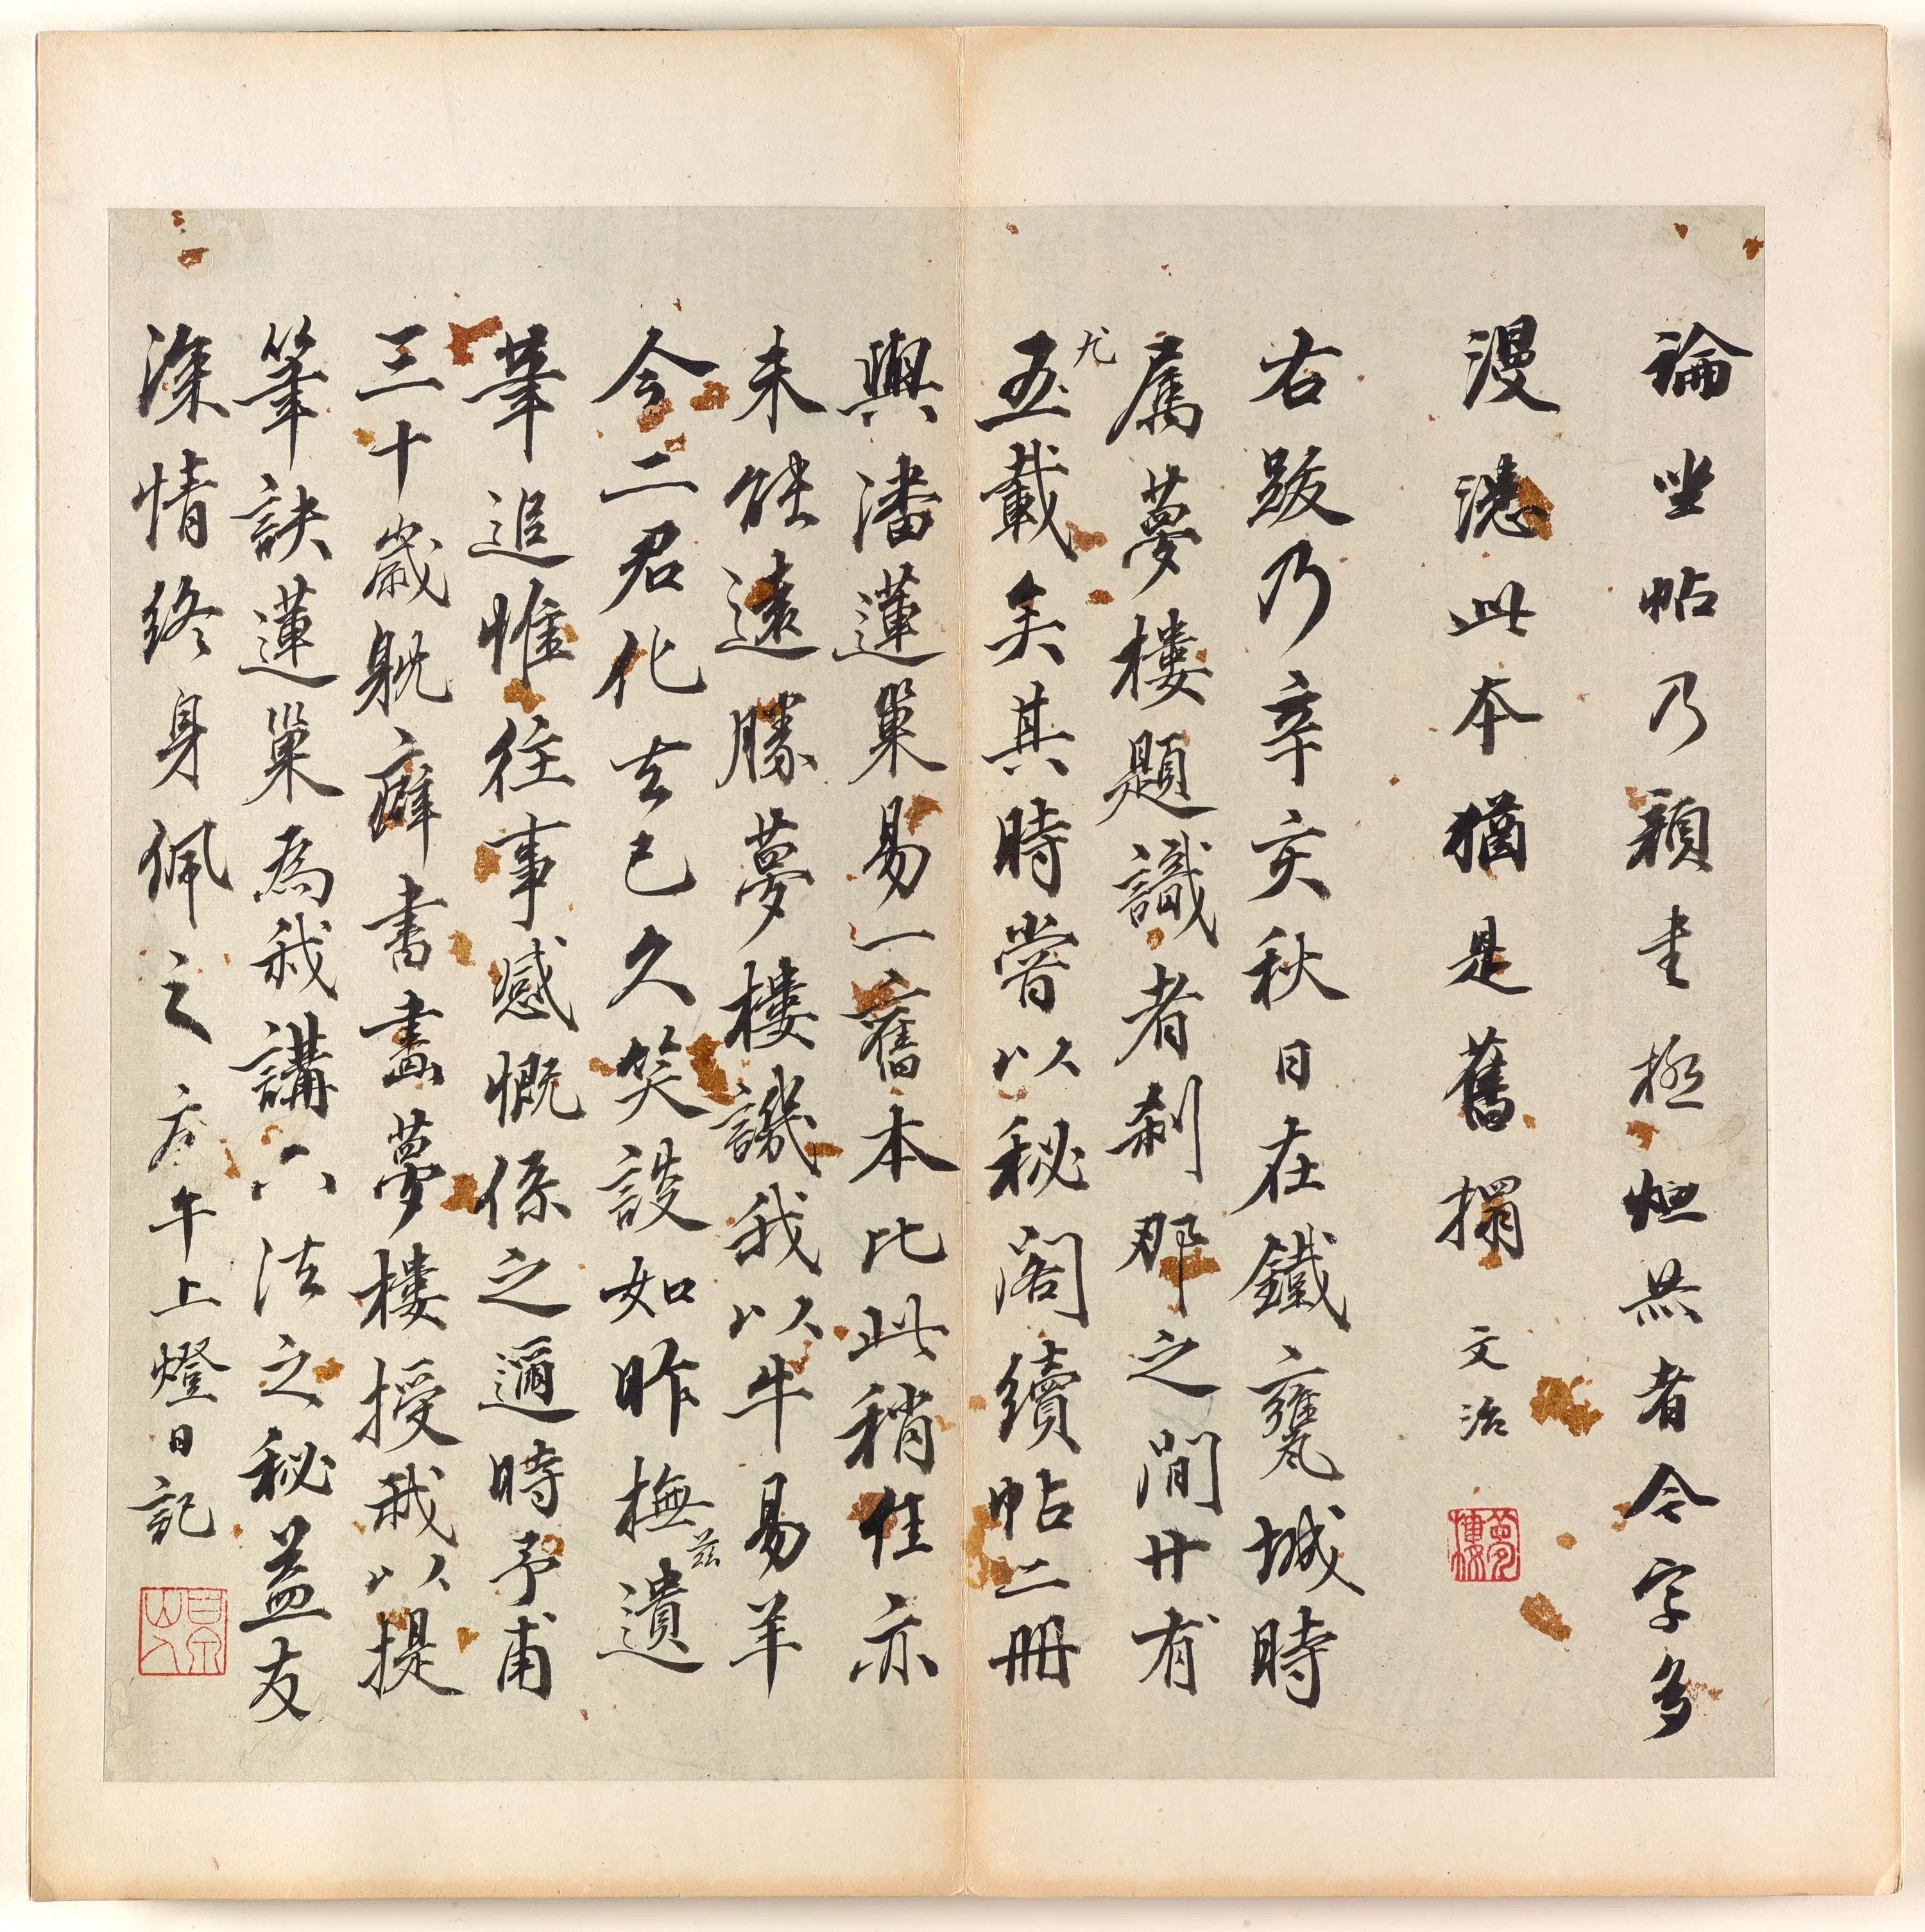 論坐帖乃顏書極烜赫者今字多
漫漶此本猶是舊搨 文治
夢樓
右跋乃辛亥秋日在鐵甕城時
屬夢樓題識者刹那之間廿有
五載矣其時嘗以秘閣續帖二冊
與潘蓮巢易一舊本比此稍佳亦
未能遠勝夢樓譏我以牛易羊
今二君化去已久笑談如昨撫兹遺
筆追惟往事感慨係之邇時予甫
三十歲躭癖書畫夢樓授我以提
筆訣蓮巢為我講六法之秘益友
深情終身佩之 庚午上燈日記